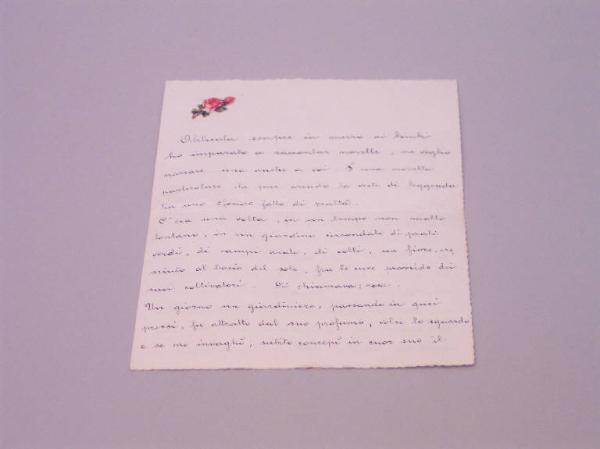 Abituata sempre in mezzo ai bimbi
ho imparato a raccontar novelle, ne voglio
narrare una anche a voi. È una novella
particolare che pur avendo la veste di leggenda
ha uno sfondo fatto di realtà.
C'era una volta, in un tempo non molto
lontano, in un giardino circondato di prati
verdi, di campi arati, di colli, un fiore, cre
sciuto al bacio del sole, fra le cure premurose dei
suoi coltivatori. Si chiamava; rosa.
Un giorno un giardiniere, passando in quei
pressi, fu attratto dal suo profumo, volse lo sguardo
e se ne invaghì, subito concepì in cuor suo il